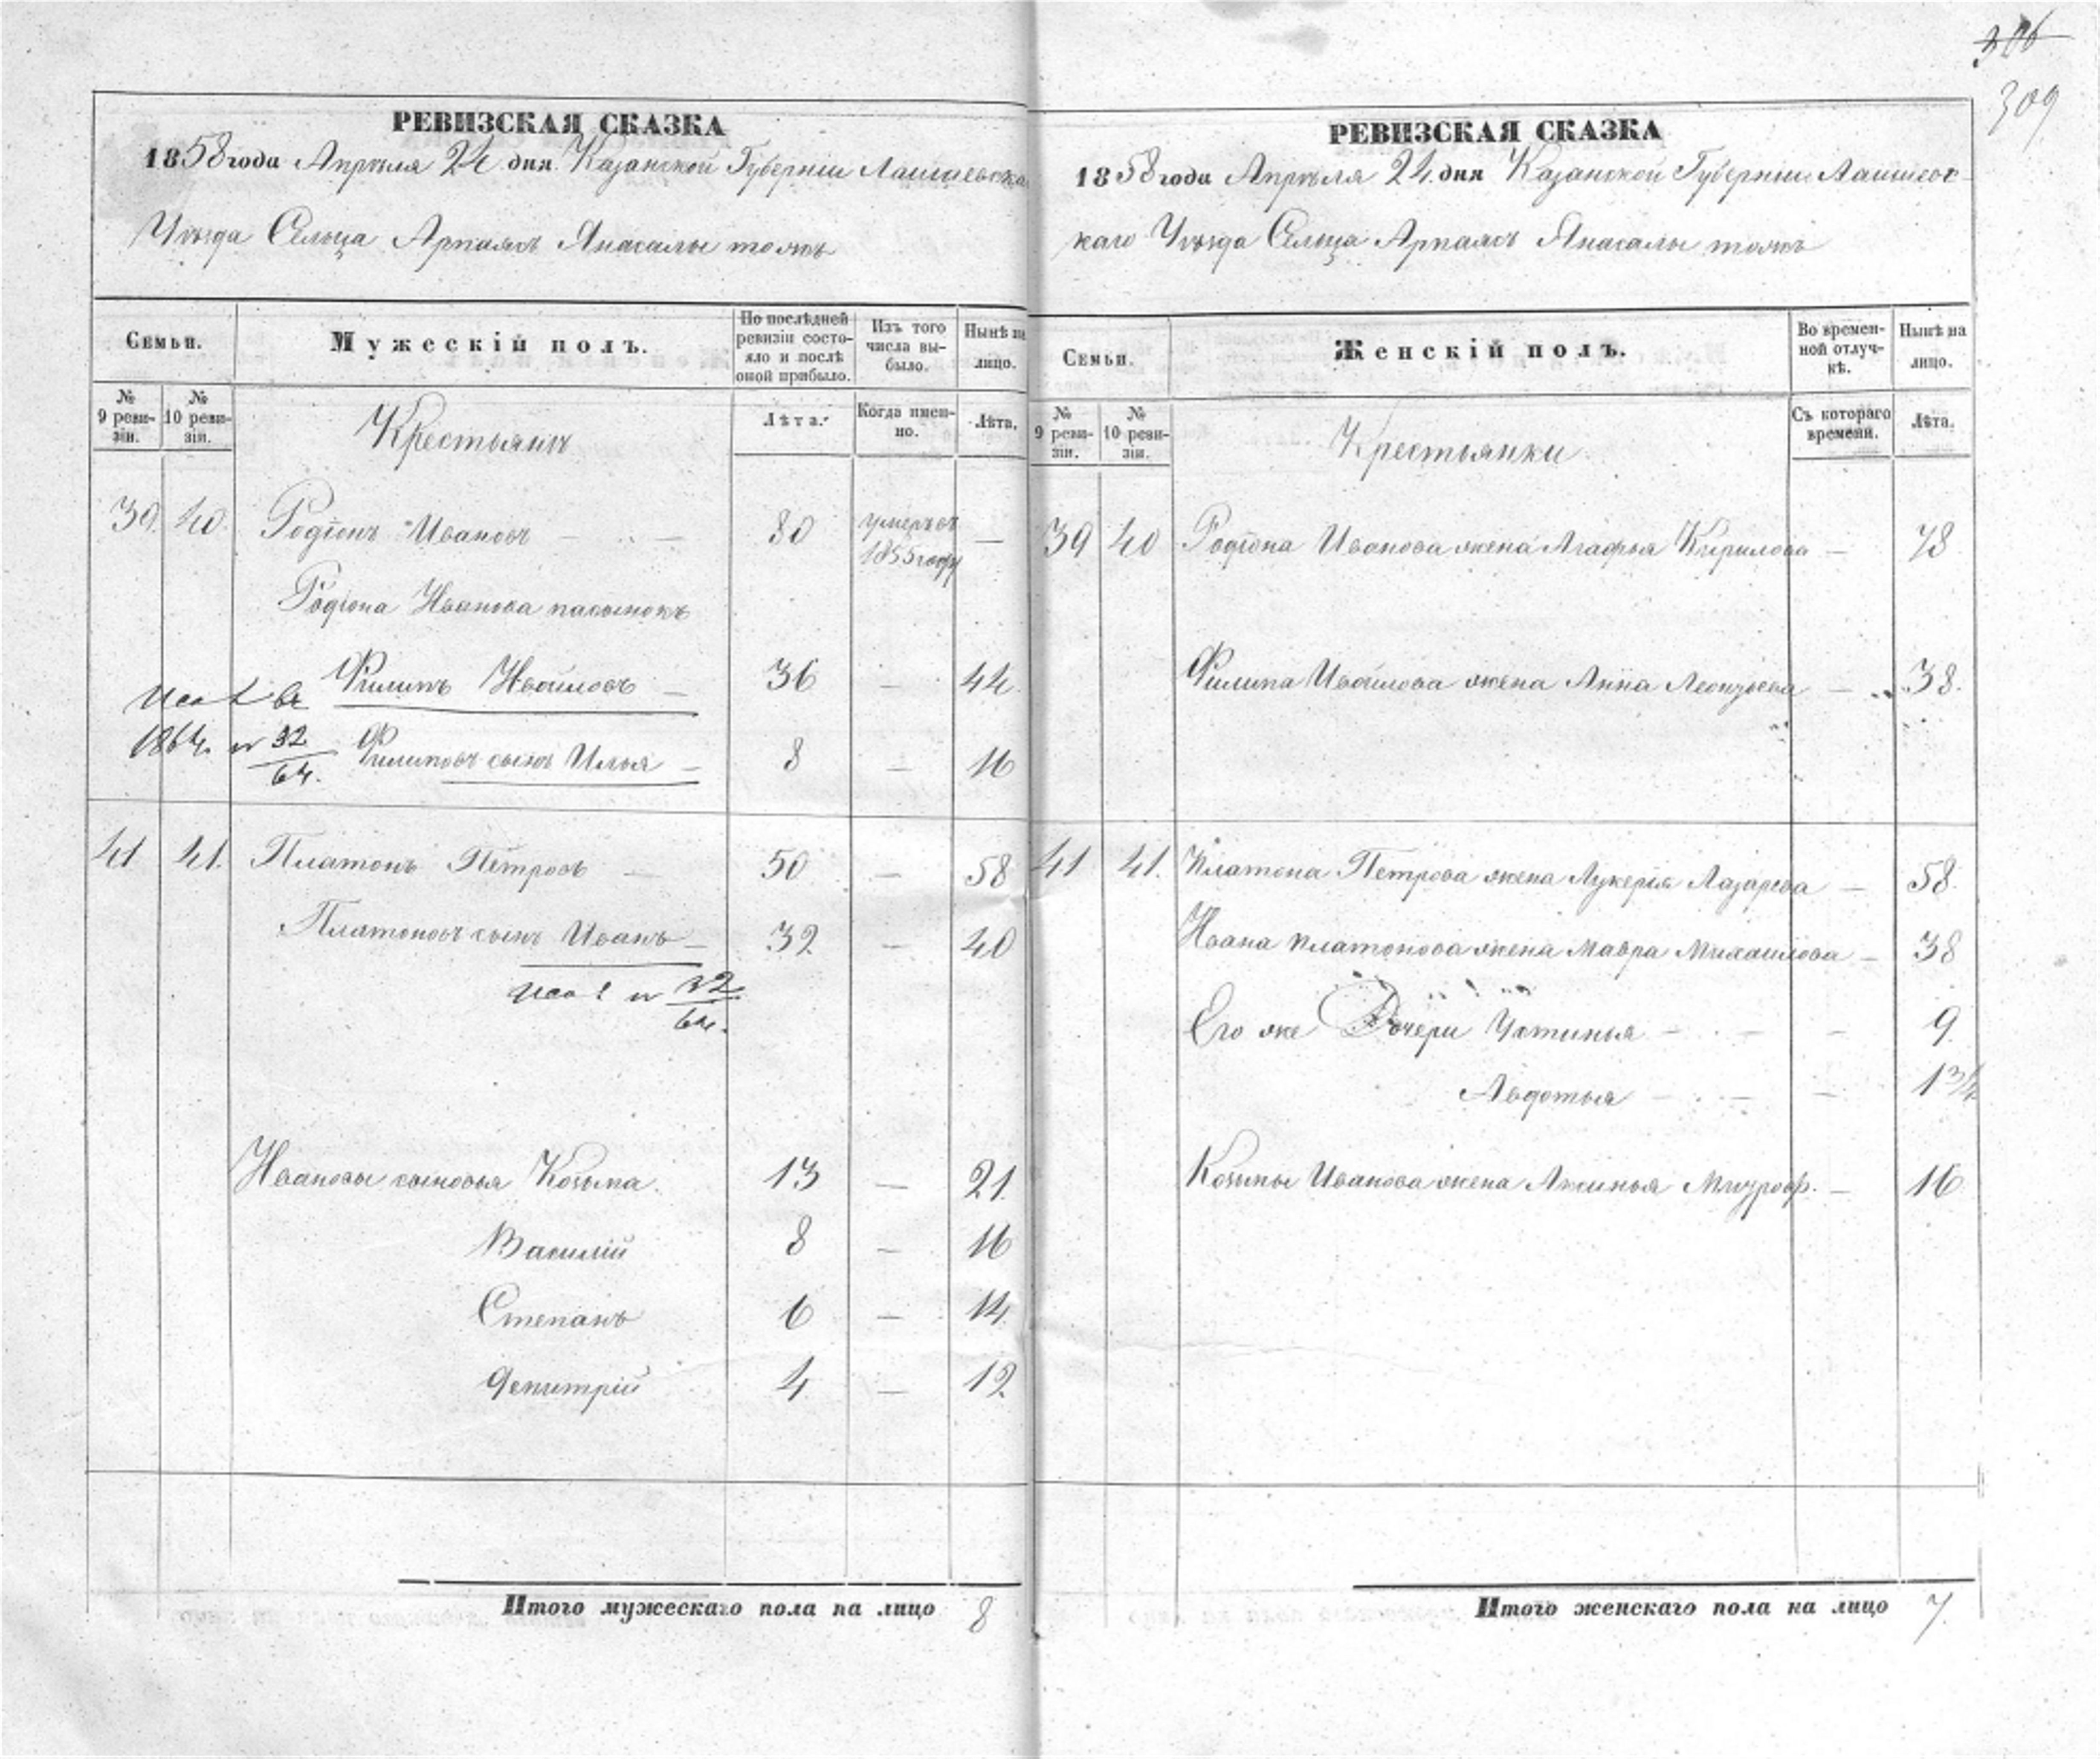 306
309
РЕВИЗСКАЯ СКАЗКА
1858 года Апрѣля 24 дня Казанской Губерніи Лаишевска
Уѣзда Сельца Арпаязъ Янасалы тожъ
Семьи.
Мужескій полъ.
По послѣдней ревизіи состояло и послѣ оной прибыло.
Изъ того числа выбыло.
Нынѣ на лицо.
№ 9 ревизіи.
№ 10 ревизіи.
Крестьяне
Лѣта.
Когда именно.
Лѣта.
39. 40. Родіонъ Ивановъ — 80 умеръ въ 1855 году —
Родіона Иванова пасынокъ
Филипъ Измайловъ — 36 — 44.
1864. 32/64. Филиповъ сынъ Илья — 8 — 16
41 41. Платонъ Петровъ — 50 — 58
Платоновъ сынъ Иванъ — 32 — 40
32/64.
Ивановы сыновья Козьма. 13 — 21
Василій 8 — 16
Степанъ 6 — 14
Дмитрій 4 — 12
Итого мужескаго пола на лицо 8
РЕВИЗСКАЯ СКАЗКА
1858 года Апрѣля 24. дня Казанской Губерніи Лаишевс
каго Уѣзда Сельца Арпаязъ Янасалы тожъ
Семьи.
Женскій полъ.
Во временной отлучкѣ.
Нынѣ на лицо.
№ 9 ревизіи.
№ 10 ревизіи.
Крестьянки
Съ котораго времени.
Лѣта.
39 40 Родіона Иванова жена Агафья Кирилова — 78
Филипа жена Анна Леонтьева — 38.
41 41. Платона Петрова жена Лукерія Лазарева — 58.
Ивана Платонова жена Мавра Михаилова — 38
Его же Дочери Устинья — — 9
Авдотья — — 1 3/4
Козьмы Иванова жена Аксинья Митроф. — 16
Итого женскаго пола на лицо 7.